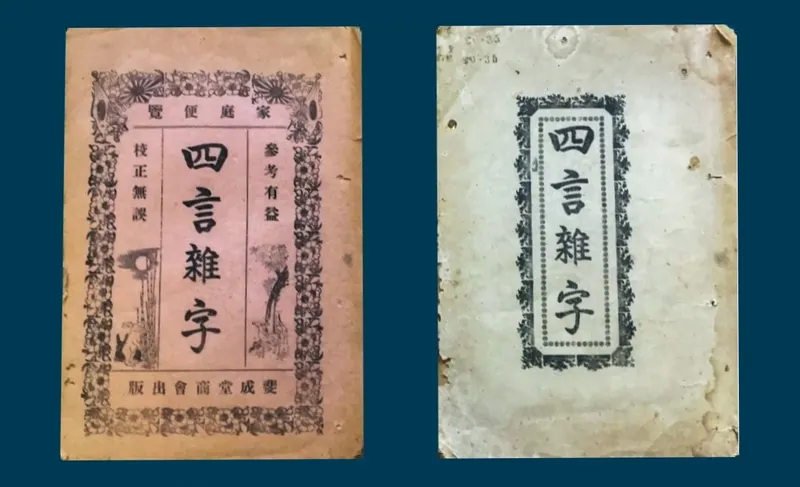 家庭便覽
參考有益
四言雜字
校正無誤
斐成堂商會出版
四言雜字